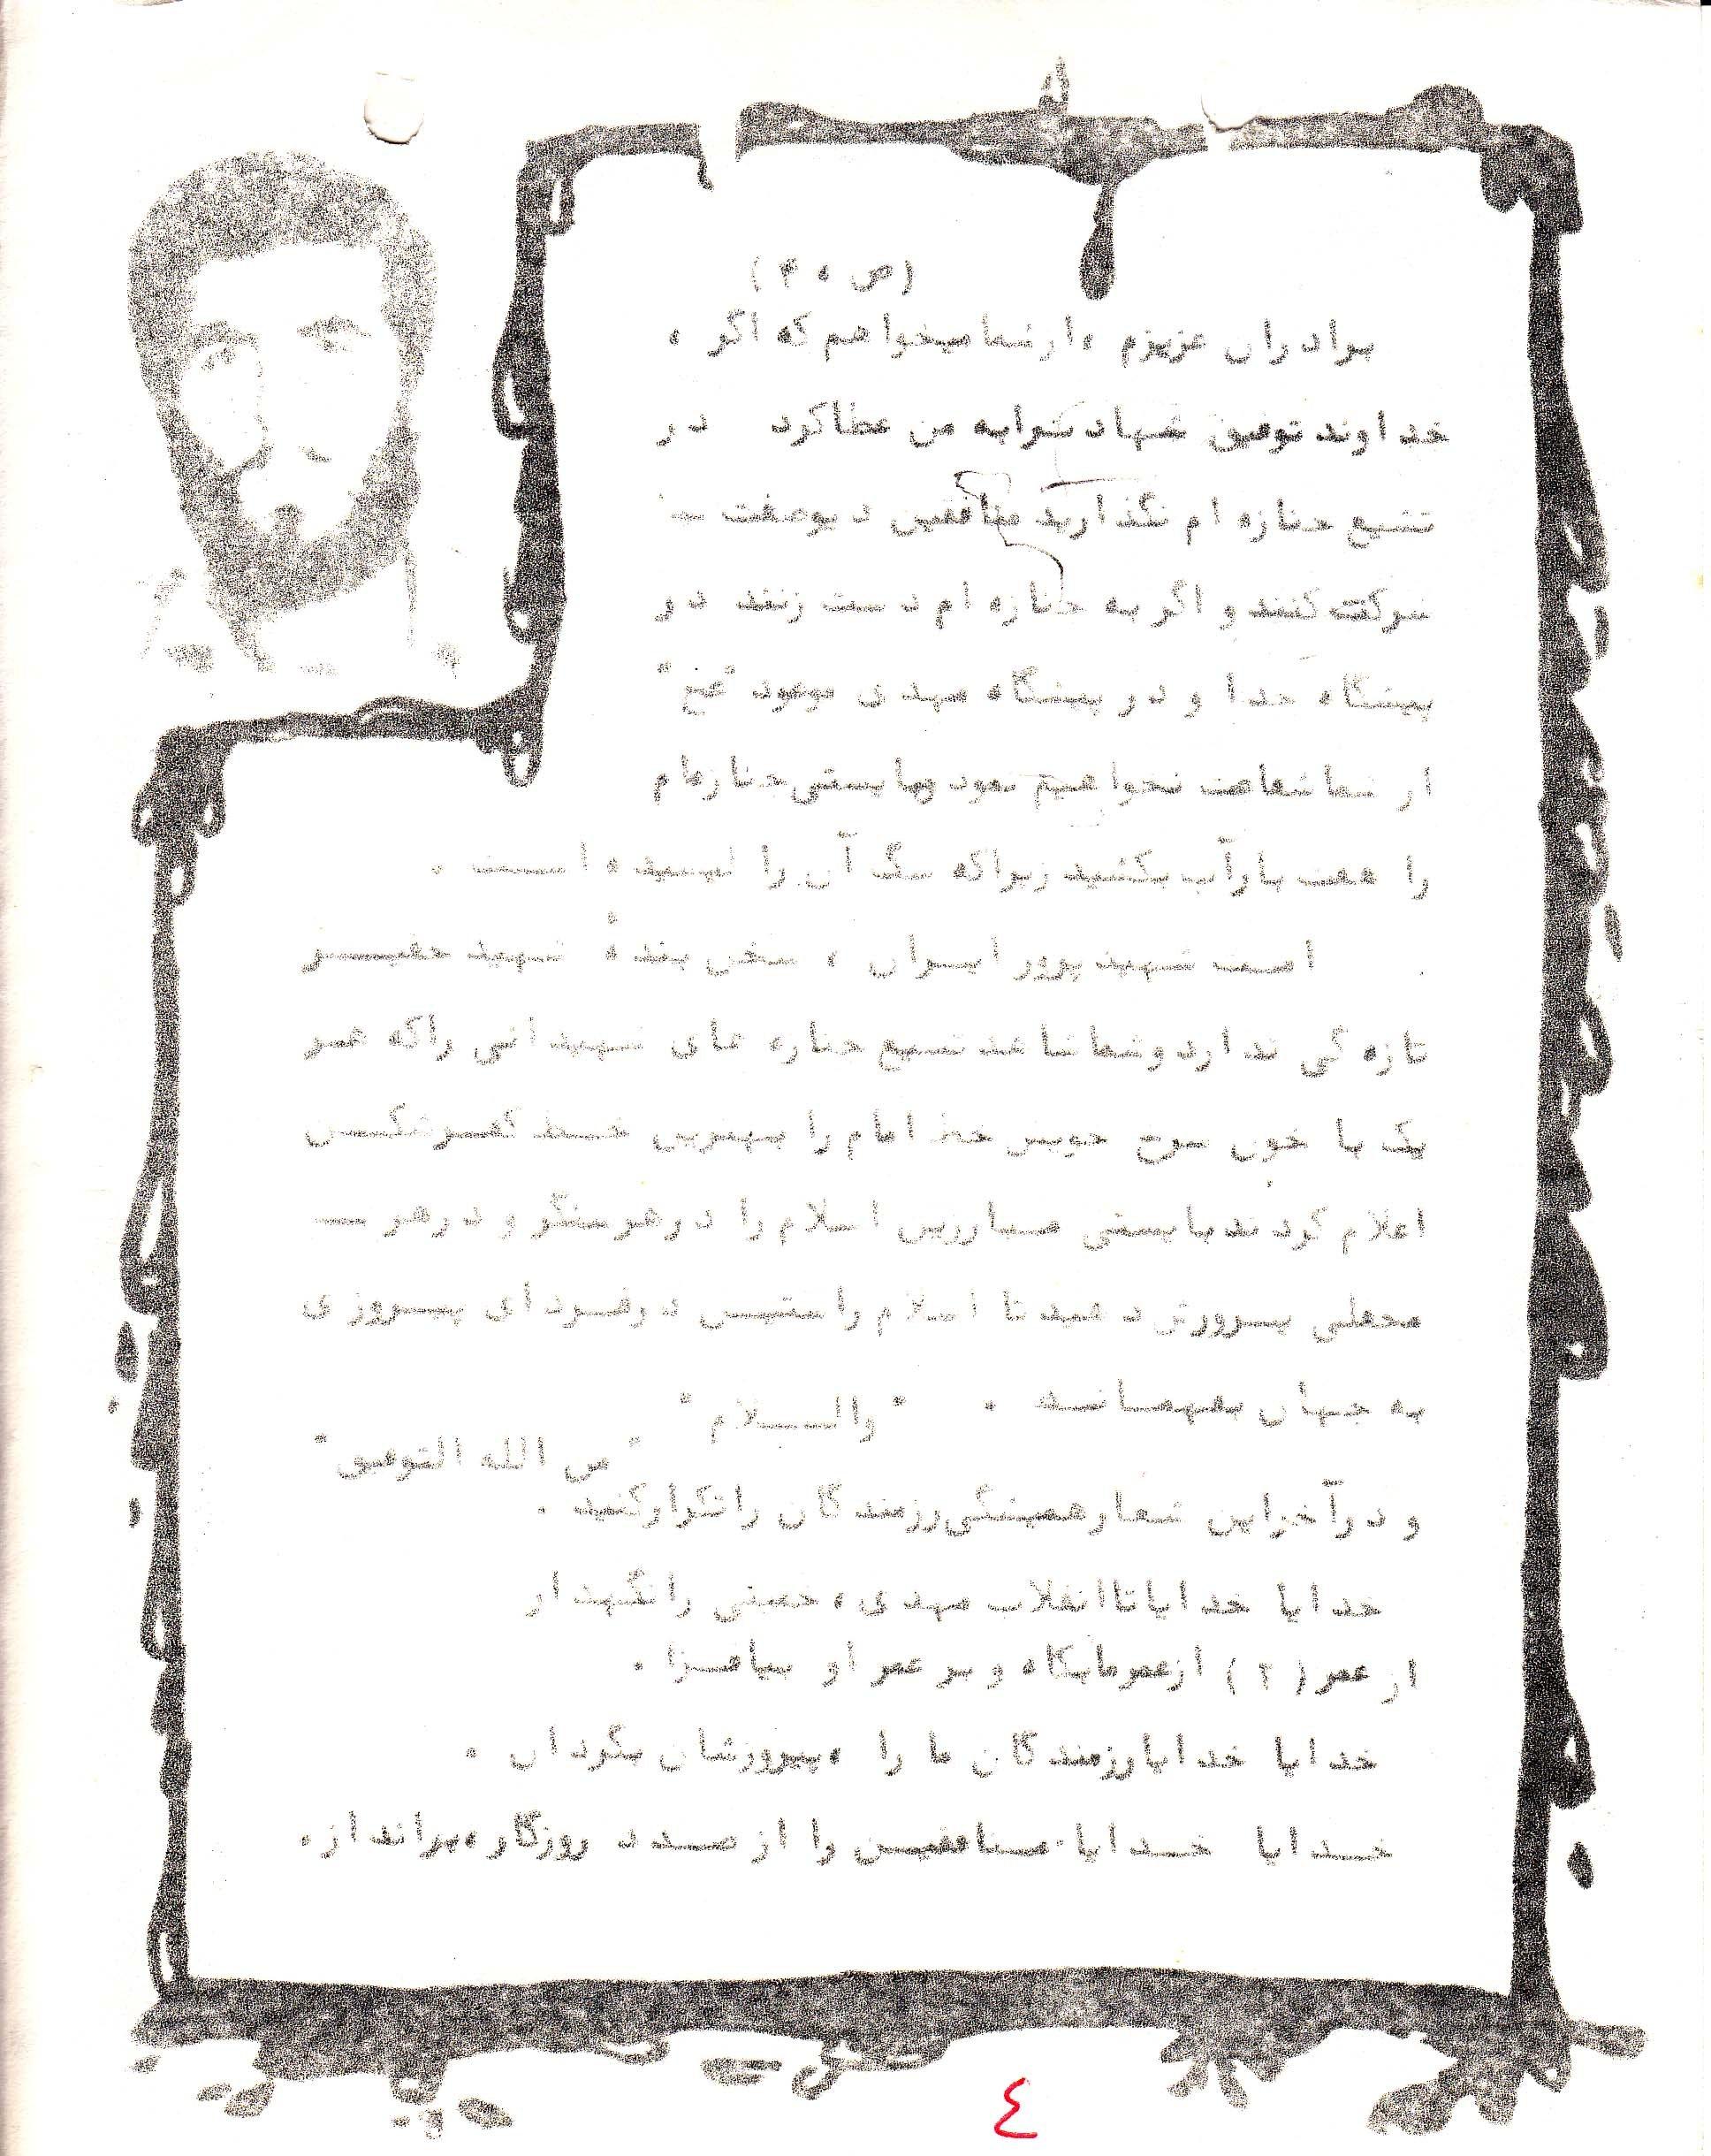 (ص ، ۴)
برادران عزیزم ، از شما میخواهم که اگر ،
خداوند توفیق شهادت را به من عطا کرد در
تشیع جنازه ام نگذارید منافقین دیو صفت -
شرکت کنند و اگر به جنازه ام دست زنند در
پیشگاه خدا و در پیشگاه مهدی موعود "عج"
از شما شفاعت نخواهیم نمود و بایستی جنازه ام
را هفت بار آب بکشید زیرا که سگ آن را لیسیده است .
امت شهید پرور ایران ، سخن بنده شهید حقیر
تازه گی ندارد و شما شاهد تشیع جنازه های شهیدانی را که هر
یک با خون سرخ خویش خط امام را بهترین خط کفر شکن
اعلام کردند بایستی مبارزین اسلام را در هر سنگر و در هر -
محفلی پرورش دهید تا اسلام راستین در فردای پیروزی
به جهان بفهمانید . "والسلام"
"من الله التوفیق"
و در آخر این شعار همیشگی رزمندگان را تکرار کنید .
خدایا خدایا تا انقلاب مهدی ، خمینی را نگهدار
از عمر (۲) از عمر ما بکاه و بر عمر او بیافزا .
خدایا خدایا رزمندگان ما را ، پیروزشان بگردان .
خدایا خدایا منافقین را از صدد روزگار ، برانداز .
٤